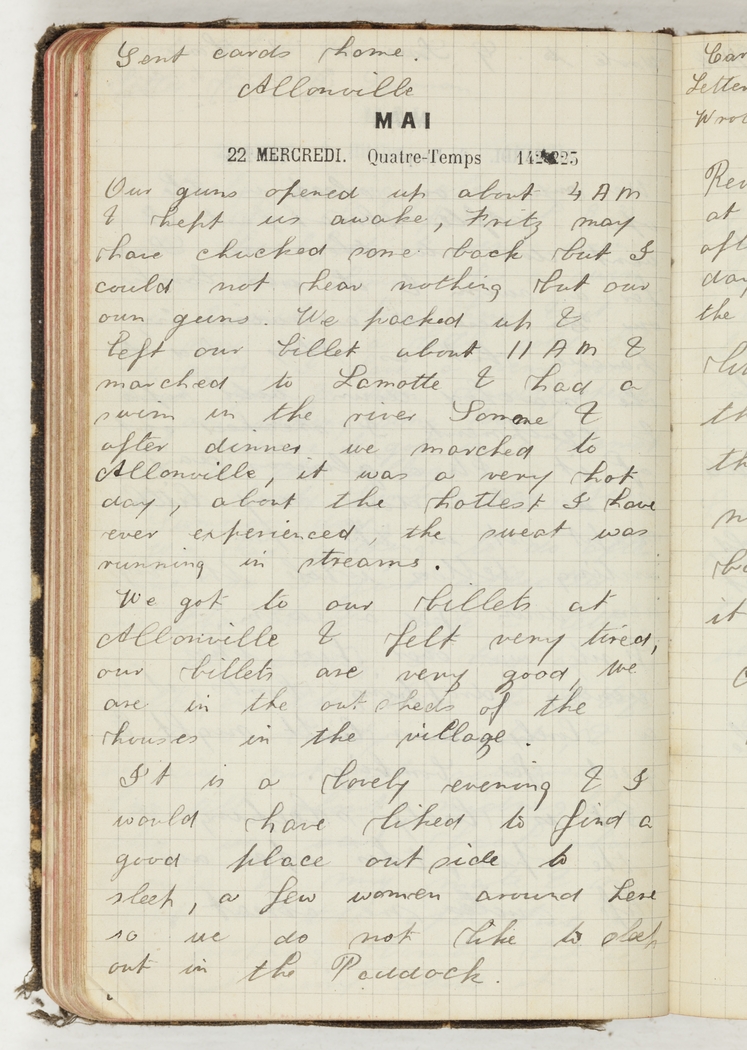 Sent cards home.
Allonville
MAI
22 MERCREDI. Quatre-Temps 142-223
Our guns opened up about 4 AM
& kept us awake, Fritz may
have chucked some back but I
could not hear nothing but our
own guns. We packed up &
left our billet about 11 AM &
marched to Lamotte & had a
swim in the river Somme &
after dinner we marched to
Allonville, it was a very hot
day, about the hottest I have
ever experienced, the sweat was
running in streams.
We got to our billets at
Allonville & felt very tired,
our billets are very good, we
are in the out sheds of the
houses in the village.
It is a lovely evening & I
would have liked to find a
good place out side to
sleep, a few women around here
so we do not like to sleep
out in the Paddock.
Letter
Wro
at
aft
day
the
th
th
it